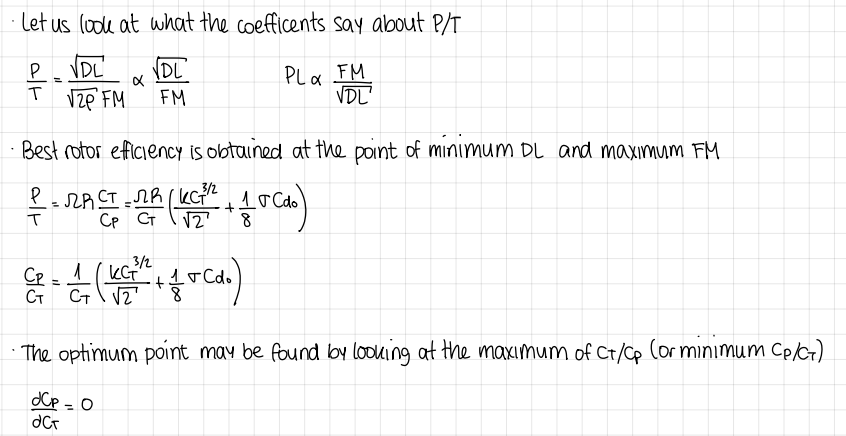 · Let us look at what the coefficents say about P/T
P/T = √DL / (√2ρ FM) ∝ √DL / FM    PL ∝ FM / √DL
· Best rotor efficiency is obtained at the point of minimum DL and maximum FM
P/T = ΩR CT/CP = ΩR/CT (kCT^3/2 / √2 + 1/8 σ Cd₀)
CP/CT = 1/CT (kCT^3/2 / √2 + 1/8 σ Cd₀)
· The optimum point may be found by looking at the maximum of CT/CP (or minimum CP/CT)
dCP/dCT = 0